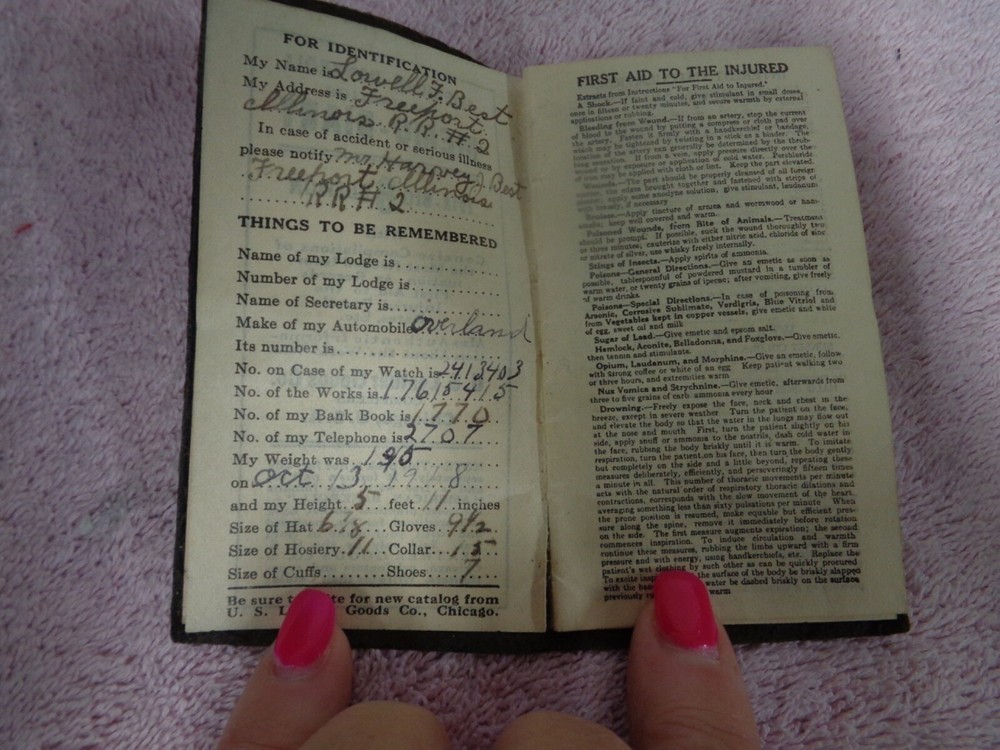 FOR IDENTIFICATION
My Name is Lowell F. Best
My Address is Freeport,
Illinois R.R. # 2
In case of accident or serious illness
please notify Mr. Harvey J Best
Freeport, Illinois
R R # 2
THINGS TO BE REMEMBERED
Name of my Lodge is
Number of my Lodge is
Name of Secretary is
Make of my Automobile Overland
Its number is
No. on Case of my Watch is 2413403
No. of the Works is 17615415
No. of my Bank Book is 1770
No. of my Telephone is 2707
My Weight was 195
on Oct 13, 1918
and my Height 5 feet 11 inches
Size of Hat 6 7/8 Gloves 9 1/2
Size of Hosiery 11 Collar 15
Size of Cuffs Shoes 7
Be sure to write for new catalog from
U. S. Goods Co., Chicago.
FIRST AID TO THE INJURED
Extracts from Instructions "For First Aid to Injured."
A Shock.—If faint and cold, give stimulant in small doses,
once in fifteen or twenty minutes, and secure warmth by external
applications or rubbing.
Bleeding from Wound.—If from an artery, stop the current
of blood to the wound by putting a compress or cloth pad over
the artery. Fasten it firmly with a handkerchief or bandage,
which may be tightened by twisting in a stick as a binder. The
location of the artery can generally be determined by the throb-
If from a vein, apply pressure directly over the
wound or by pressure or application of cold water. Perchloride
may be applied with cloth or lint. Keep the part elevated.
Wounds.—The part should be properly cleansed of all foreign
the edges brought together and fastened with strips of
plaster; apply some anodyne solution, give stimulant, laudanum
if necessary
Bruises.—Apply tincture of arnica and wormwood or hama-
keep well covered and warm.
Poisoned Wounds, from Bite of Animals.—Treatment
should be prompt. If possible, suck the wound thoroughly two
or three minutes, cauterize with either nitric acid, chloride of zinc
or nitrate of silver, use whisky freely internally.
Stings of Insects.—Apply spirits of ammonia.
Poisons—General Directions.—Give an emetic as soon as
possible, tablespoonful of powdered mustard in a tumbler of
warm water, or twenty grains of ipecac; after vomiting, give freely
of warm drinks.
Poisons—Special Directions.—In case of poisoning from
Arsenic, Corrosive Sublimate, Verdigris, Blue Vitriol and
from Vegetables kept in copper vessels, give emetic and white
of egg, sweet oil and milk
Sugar of Lead.—Give emetic and epsom salt.
Hemlock, Aconite, Belladonna, and Foxglove.—Give emetic,
then tannin and stimulants.
Opium, Laudanum, and Morphine.—Give an emetic, follow
with strong coffee or white of an egg Keep patient walking two
or three hours, and extremities warm
Nux Vomica and Strychnine.—Give emetic, afterwards from
three to five grains of carb ammonia every hour
Drowning.—Freely expose the face, neck and chest in the
breeze, except in severe weather Turn the patient on the face,
and elevate the body so that the water in the lungs may flow out
at the nose and mouth First, turn the patient slightly on his
side, apply snuff or ammonia to the nostrils, dash cold water in
the face, rubbing the body briskly until it is warm. To imitate
respiration, turn the patient on his face, then turn the body gently
but completely on the side and a little beyond, repeating these
measures deliberately, efficiently, and perseveringly fifteen times
a minute in all. This number of thoracic movements per minute
acts with the natural order of respiratory thoracic dilations and
contractions, corresponds with the slow movement of the heart,
averaging something less than sixty pulsations per minute When
the prone position is resumed, make equable but efficient pres-
sure along the spine, remove it immediately before rotation
on the side. The first measure augments expiration; the second
commences inspiration. To induce circulation and warmth
continue these measures, rubbing the limbs upward with a firm
pressure and with energy, using handkerchiefs, etc. Replace the
patient's wet clothing by such other as can be quickly procured
To excite the surface of the body be briskly slapped
with the hand water be dashed briskly on the surface
previously warm